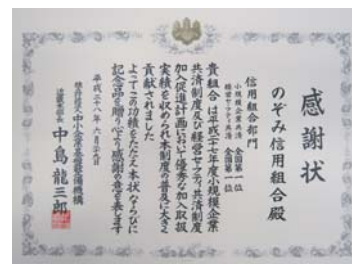 感謝状
のぞみ信用組合殿
信用組合部門
小規模企業共済 全国第一位
経営セーフティ共済 全国第一位
貴組合は平成二十七年度小規模企業
共済制度及び経営セーフティ共済制度
加入促進計画において優秀な加入取扱
実績を収められ本制度の普及に大きく
貢献されました
よってこの功績をたたえ本状ならびに
記念品を贈り心から感謝の意を表します
平成二十八年六月
独立行政法人中小企業基盤整備機構
近畿本部長 中島龍三郎